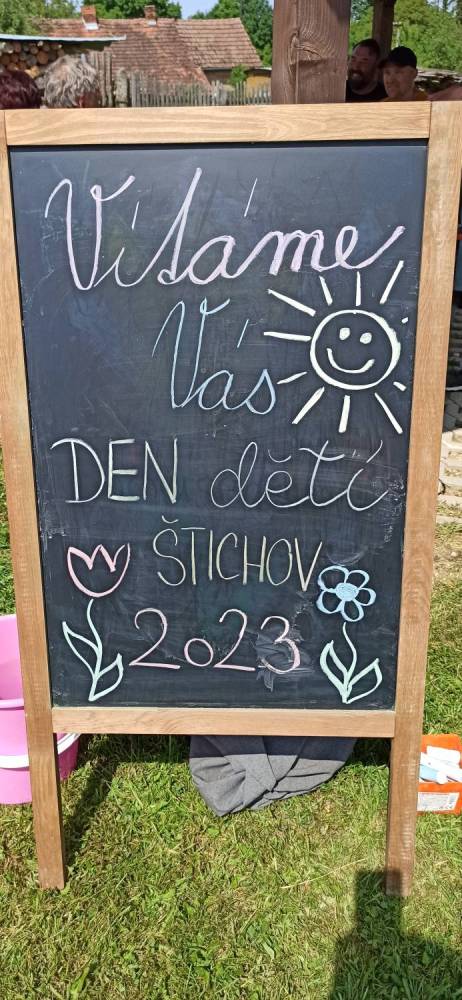 Vítáme
Vás
DEN dětí
ŠTICHOV
2023